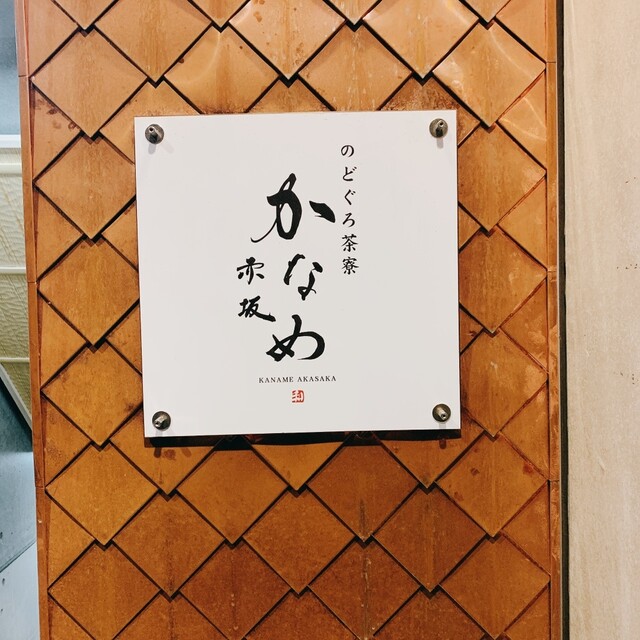 のどぐろ茶寮
かなめ
赤坂
KANAME AKASAKA